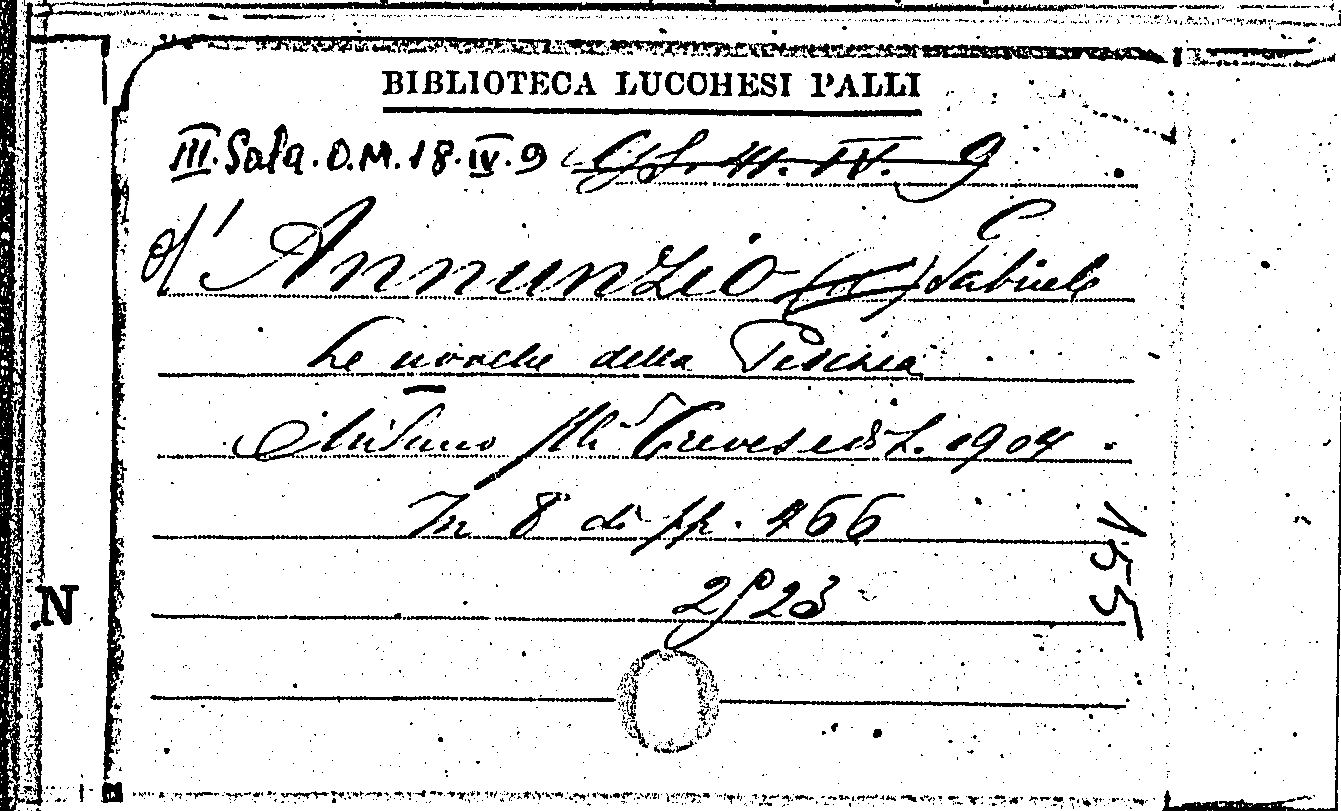 BIBLIOTECA LUCCHESI PALLI
III. Sala. D.M. 18. IV. 9
d' Annunzio Gabriele
Le novelle della Pescara
Milano flli Treves edit. 1904.
In 8° di pp. 466
N